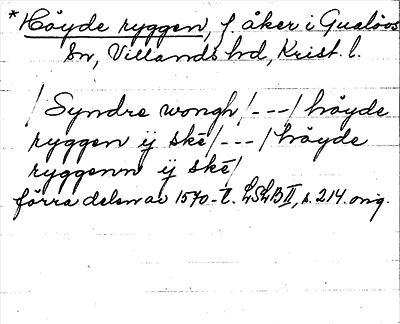 *Höyde ryggen, f. åker i Gualövs
Sn, Villands hd, Krist. l.
/ Syndre wongh /---/ höyde
ryggen ij skē /---/ höyde
ryggenn ij skē /
förra delen av 1570-t. LSLB II, s. 214. orig.